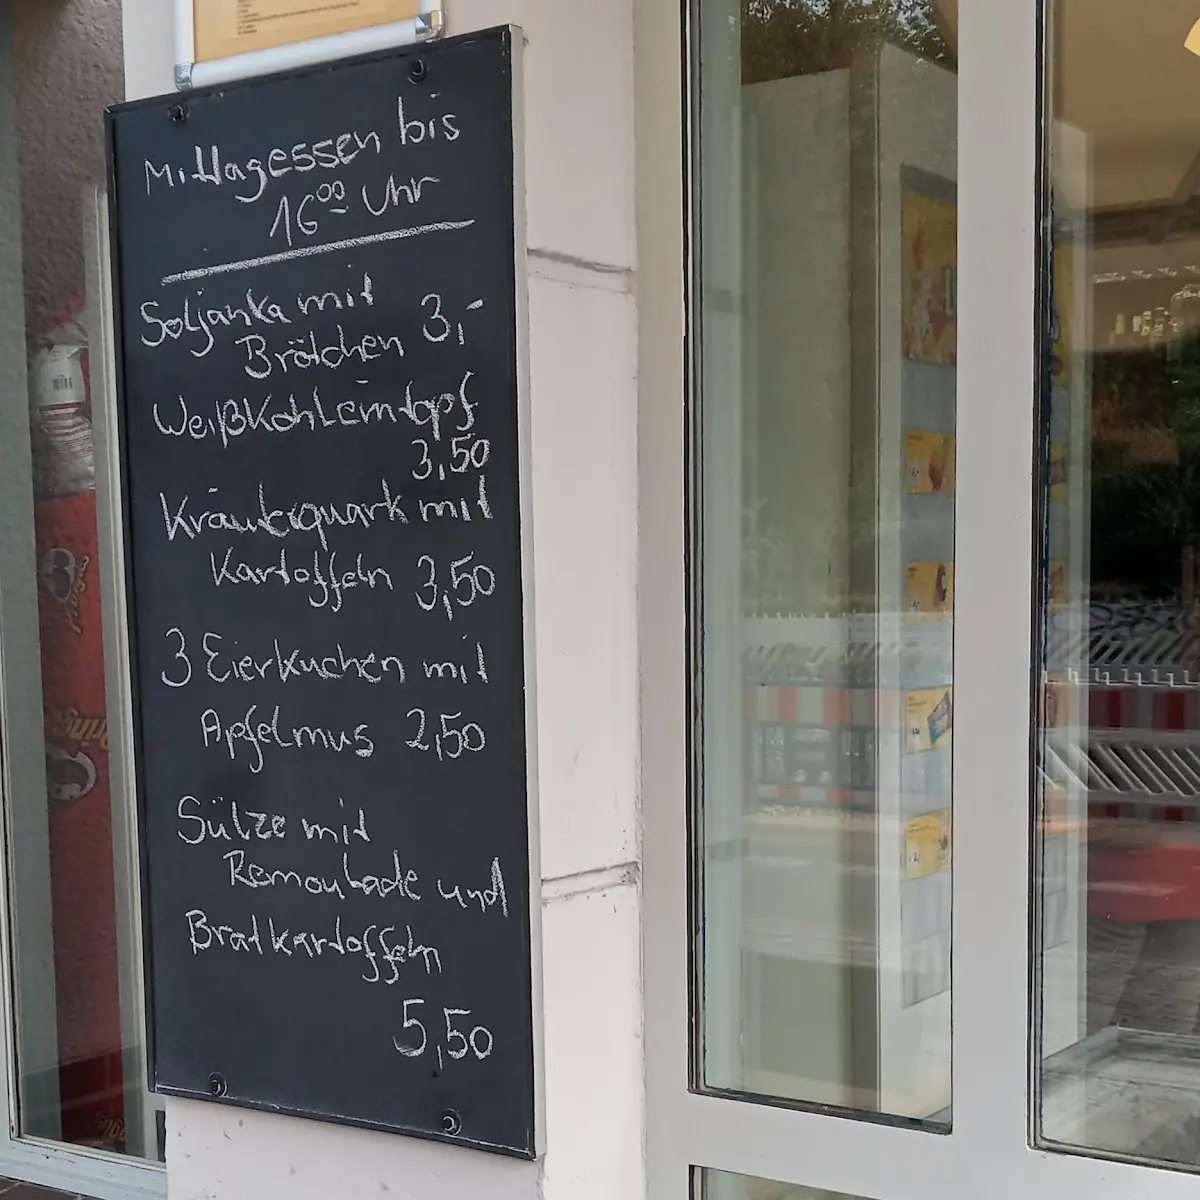 Mittagessen bis
16⁰⁰ Uhr
Soljanka mit
Brötchen 3,-
Weißkohleintopf
3,50
Kräuterquark mit
Kartoffeln 3,50
3 Eierkuchen mit
Apfelmus 2,50
Sülze mit
Remoulade und
Bratkartoffeln
5,50